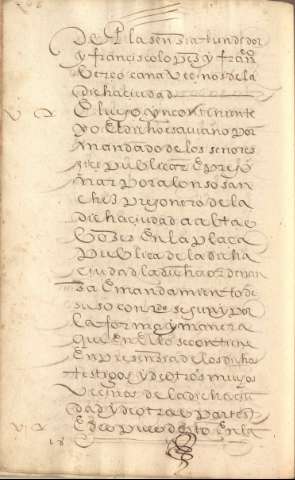 De Pla sensia tundidor
y francisco lopez y fran^co
Vereo cana Vecinos de la
dicha ciudad
E luego yncontinente
yo El dicho escrivano por
mandado de los señores
fize publicar E prego
nar por alonso san
chez pregonero de la
dicha ciudad a altas
bozes En la plaça
publica de la dicha
ciudad la dicha
E mandamiento de
suso con segun y por
la forma y manera
que En Ello se contiene
En presencia de los dichos
testigos y de otros muchos
Vecinos de la dicha ciu
dad y de otras partes
E de Pues de esto En la